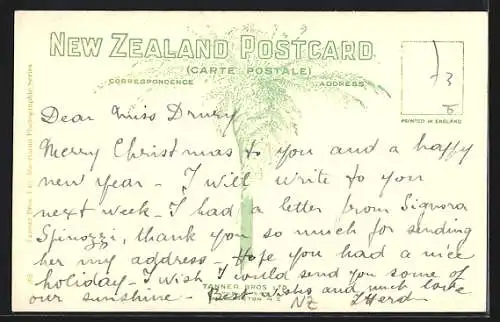 NEW ZEALAND POSTCARD
(CARTE POSTALE)
CORRESPONDENCE ADDRESS
PRINTED IN ENGLAND
73
Dear Miss Drury
Merry Christmas to you and a happy
new year - I will write to you
next week - I had a letter from Signora
Spinozzi, thank you so much for sending
her my address - Hope you had a nice
holiday - I wish I could send you some of
our sunshine - Best wishes and much love
NZ
TANNER BROS LTD
Tanner Bros. Ltd. Maoriland Photographic Series